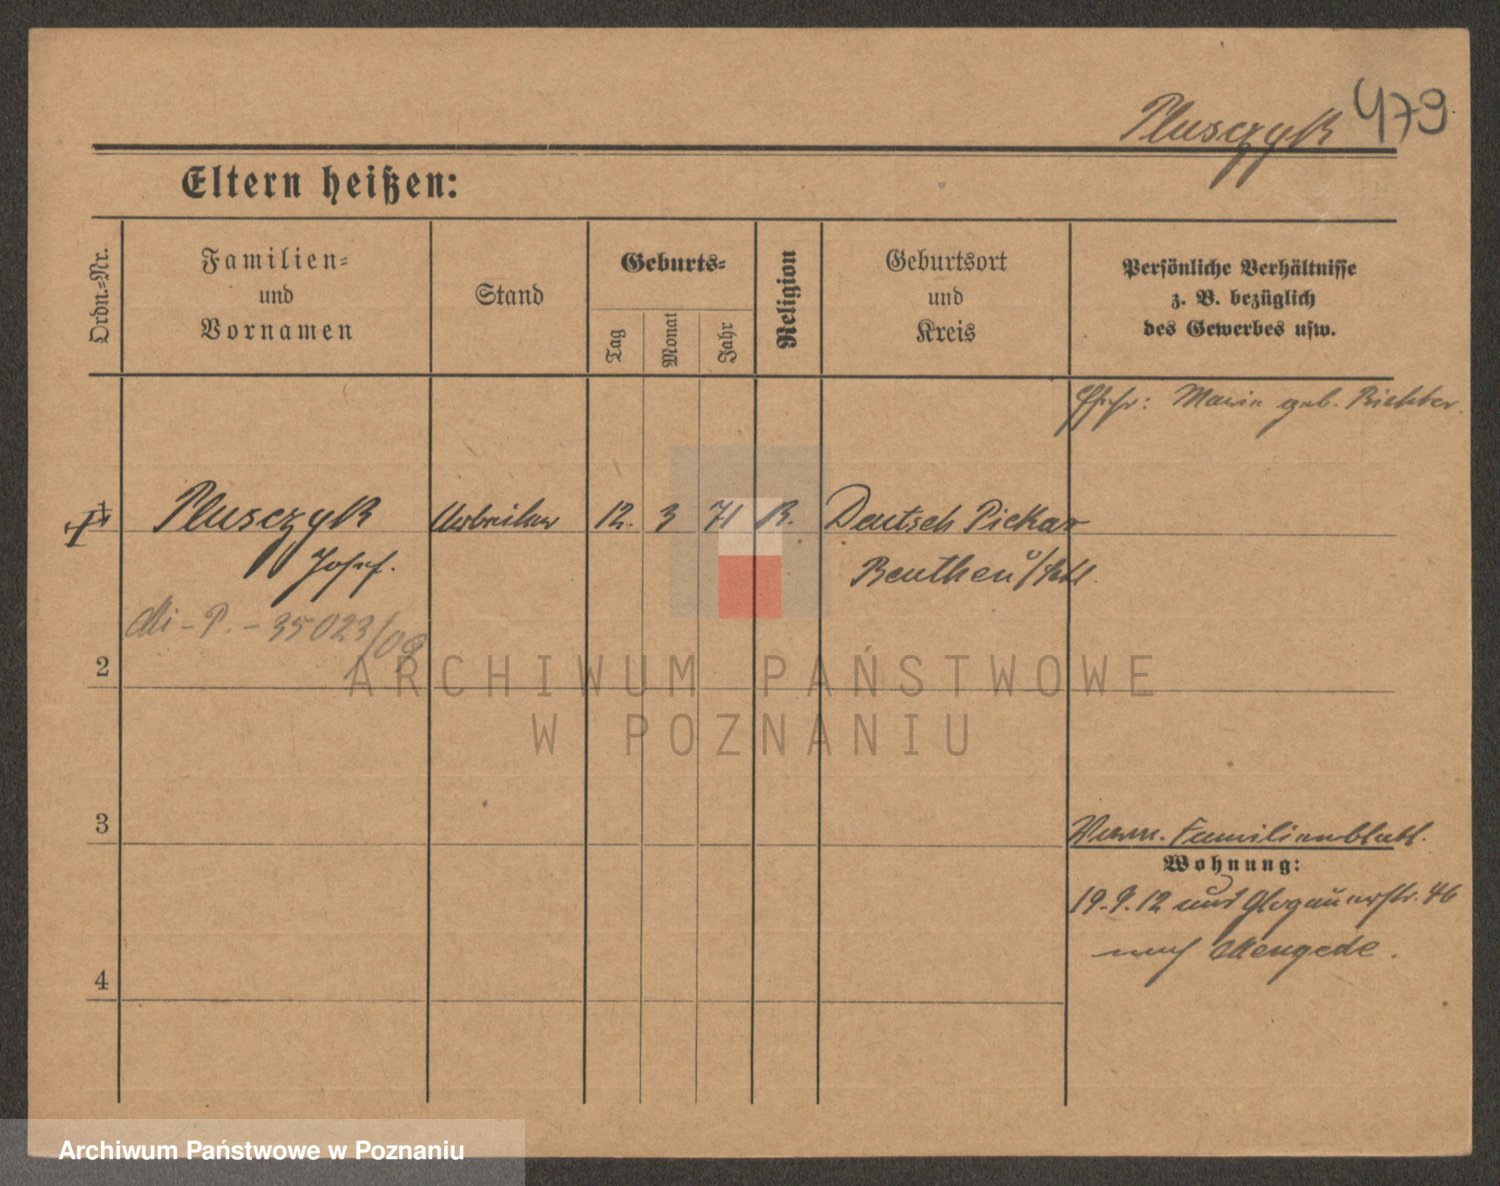 Pluszczyk 479
Eltern heißen:
Ordn.-Nr.
Familien-
und
Vornamen
Stand
Geburts-
Tag
Monat
Jahr
Religion
Geburtsort
und
Kreis
Persönliche Verhältnisse
z. B. bezüglich
des Gewerbes usw.
Marie geb. Richter.
1
Plusczyk
Josef.
Arbeiter
12.
3
71
K.
Deutsch Piekar
Beuthen
Mi-P.-35023/09
2
ARCHIWUM PAŃSTWOWE
W POZNANIU
3
Familienblatt.
Wohnung:
19.9.12 und Glogauerstr. 46
nach Mengede.
4
Archiwum Państwowe w Poznaniu